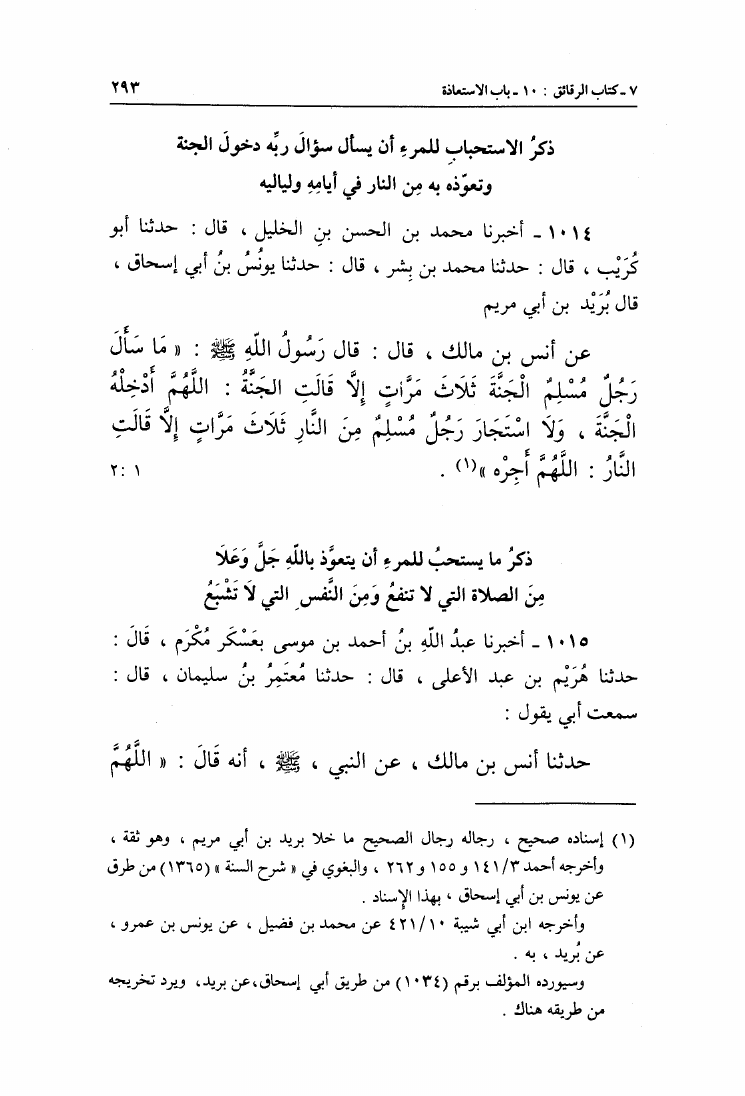 ٧ - كتاب الرقائق : ١٠ - باب الاستعاذة ٢٩٣
ذكرُ الاستحبابِ للمرءِ أن يسأل سؤالَ ربِّه دخولَ الجنة
وتعوّذه به مِن النار في أيامِهِ ولياليه
١٠١٤ - أخبرنا محمد بن الحسن بنِ الخليل ، قال : حدثنا أبو
كُرَيْب ، قال : حدثنا محمد بن بِشر ، قال : حدثنا يونُسُ بنُ أبي إسحاق ،
قال بُرَيْد بن أبي مريم
عن أنس بن مالك ، قال : قال رَسُولُ اللّهِ ﷺ : « مَا سَأَلَ
رَجُلٌ مُسْلِمٌ الْجَنَّةَ ثَلاَثَ مَرَّاتٍ إِلاَّ قَالَتِ الجَنَّةُ : اللَّهُمَّ أَدْخِلْهُ
الْجَنَّةَ ، وَلَا اسْتَجَارَ رَجُلٌ مُسْلِمٌ مِنَ النَّارِ ثَلَاثَ مَرَّاتٍ إِلاَّ قَالَتِ
النَّارُ : اللَّهُمَّ أَجِرْه »(١) . ١ :٢
ذكرُ ما يستحبُ للمرءِ أن يتعوَّذ باللّهِ جَلَّ وَعَلَا
مِنَ الصلاة التي لا تنفعُ وَمِنَ النَّفسِ التي لَا تَشْبَعُ
١٠١٥ - أخبرنا عبدُ اللّهِ بنُ أحمد بن موسى بعَسْكَر مُكْرَم ، قَالَ :
حدثنا هُرَيْم بن عبد الأعلى ، قال : حدثنا مُعتَمِرُ بنُ سليمان ، قال :
سمعت أبي يقول :
حدثنا أنس بن مالك ، عن النبي ، ﷺ ، أنه قَالَ : « اللَّهُمَّ
(١) إسناده صحيح ، رجاله رجال الصحيح ما خلا بريد بن أبي مريم ، وهو ثقة ،
وأخرجه أحمد ١٤١/٣ و ١٥٥ و ٢٦٢ ، والبغوي في « شرح السنة » (١٣٦٥) من طرق
عن يونس بن أبي إسحاق ، بهذا الإسناد .
وأخرجه ابن أبي شيبة ٤٢١/١٠ عن محمد بن فضيل ، عن يونس بن عمرو ،
عن بُريد ، به .
وسيورده المؤلف برقم (١٠٣٤) من طريق أبي إسحاق،عن بريد، ويرد تخريجه
من طريقه هناك .